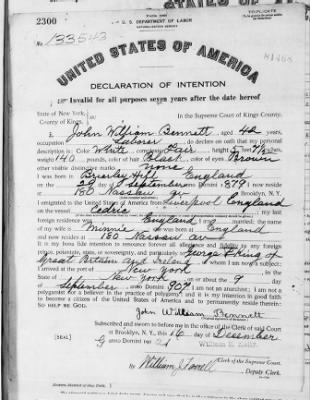 TRIPLICATE
2300
U. S. DEPARTMENT OF LABOR
NATURALIZATION SERVICE
No. 133543
UNITED STATES OF AMERICA
DECLARATION OF INTENTION
Invalid for all purposes seven years after the date hereof
State of New York,
County of Kings,
In the Supreme Court of Kings County.
I, John William Bennett, aged 42 years,
occupation Laborer, do declare on oath that my personal
description is: Color White, complexion Fair, height 5 feet inches,
weight 140 pounds, color of hair Black, color of eyes Brown
other visible distinctive marks none
I was born in Brierley Hill England
on the day of September, anno Domini 1879; I now reside
at 180 Nassau av Brooklyn, N.Y.
I emigrated to the United States of America from Liverpool England
on the vessel Cedric; my last
foreign residence was England; I am married; the name
of my wife is Minnie; she was born at England
and now resides at 180 Nassau av
It is my bona fide intention to renounce forever all allegiance and fidelity to any foreign
prince, potentate, state, or sovereignty, and particularly to George V King of
Great Britain and Ireland, of whom I am now a subject;
I arrived at the port of New York, in the
State of New York, on or about the 9 day
of September, anno Domini 1907; I am not an anarchist; I am not a
polygamist nor a believer in the practice of polygamy; and it is my intention in good faith
to become a citizen of the United States of America and to permanently reside therein:
SO HELP ME GOD.
John William Bennett
Subscribed and sworn to before me in the office of the Clerk of said Court
at Brooklyn, N. Y., this 16 day of December
[SEAL]
anno Domini 1921
Clerk of the Supreme Court.
By Deputy Clerk.